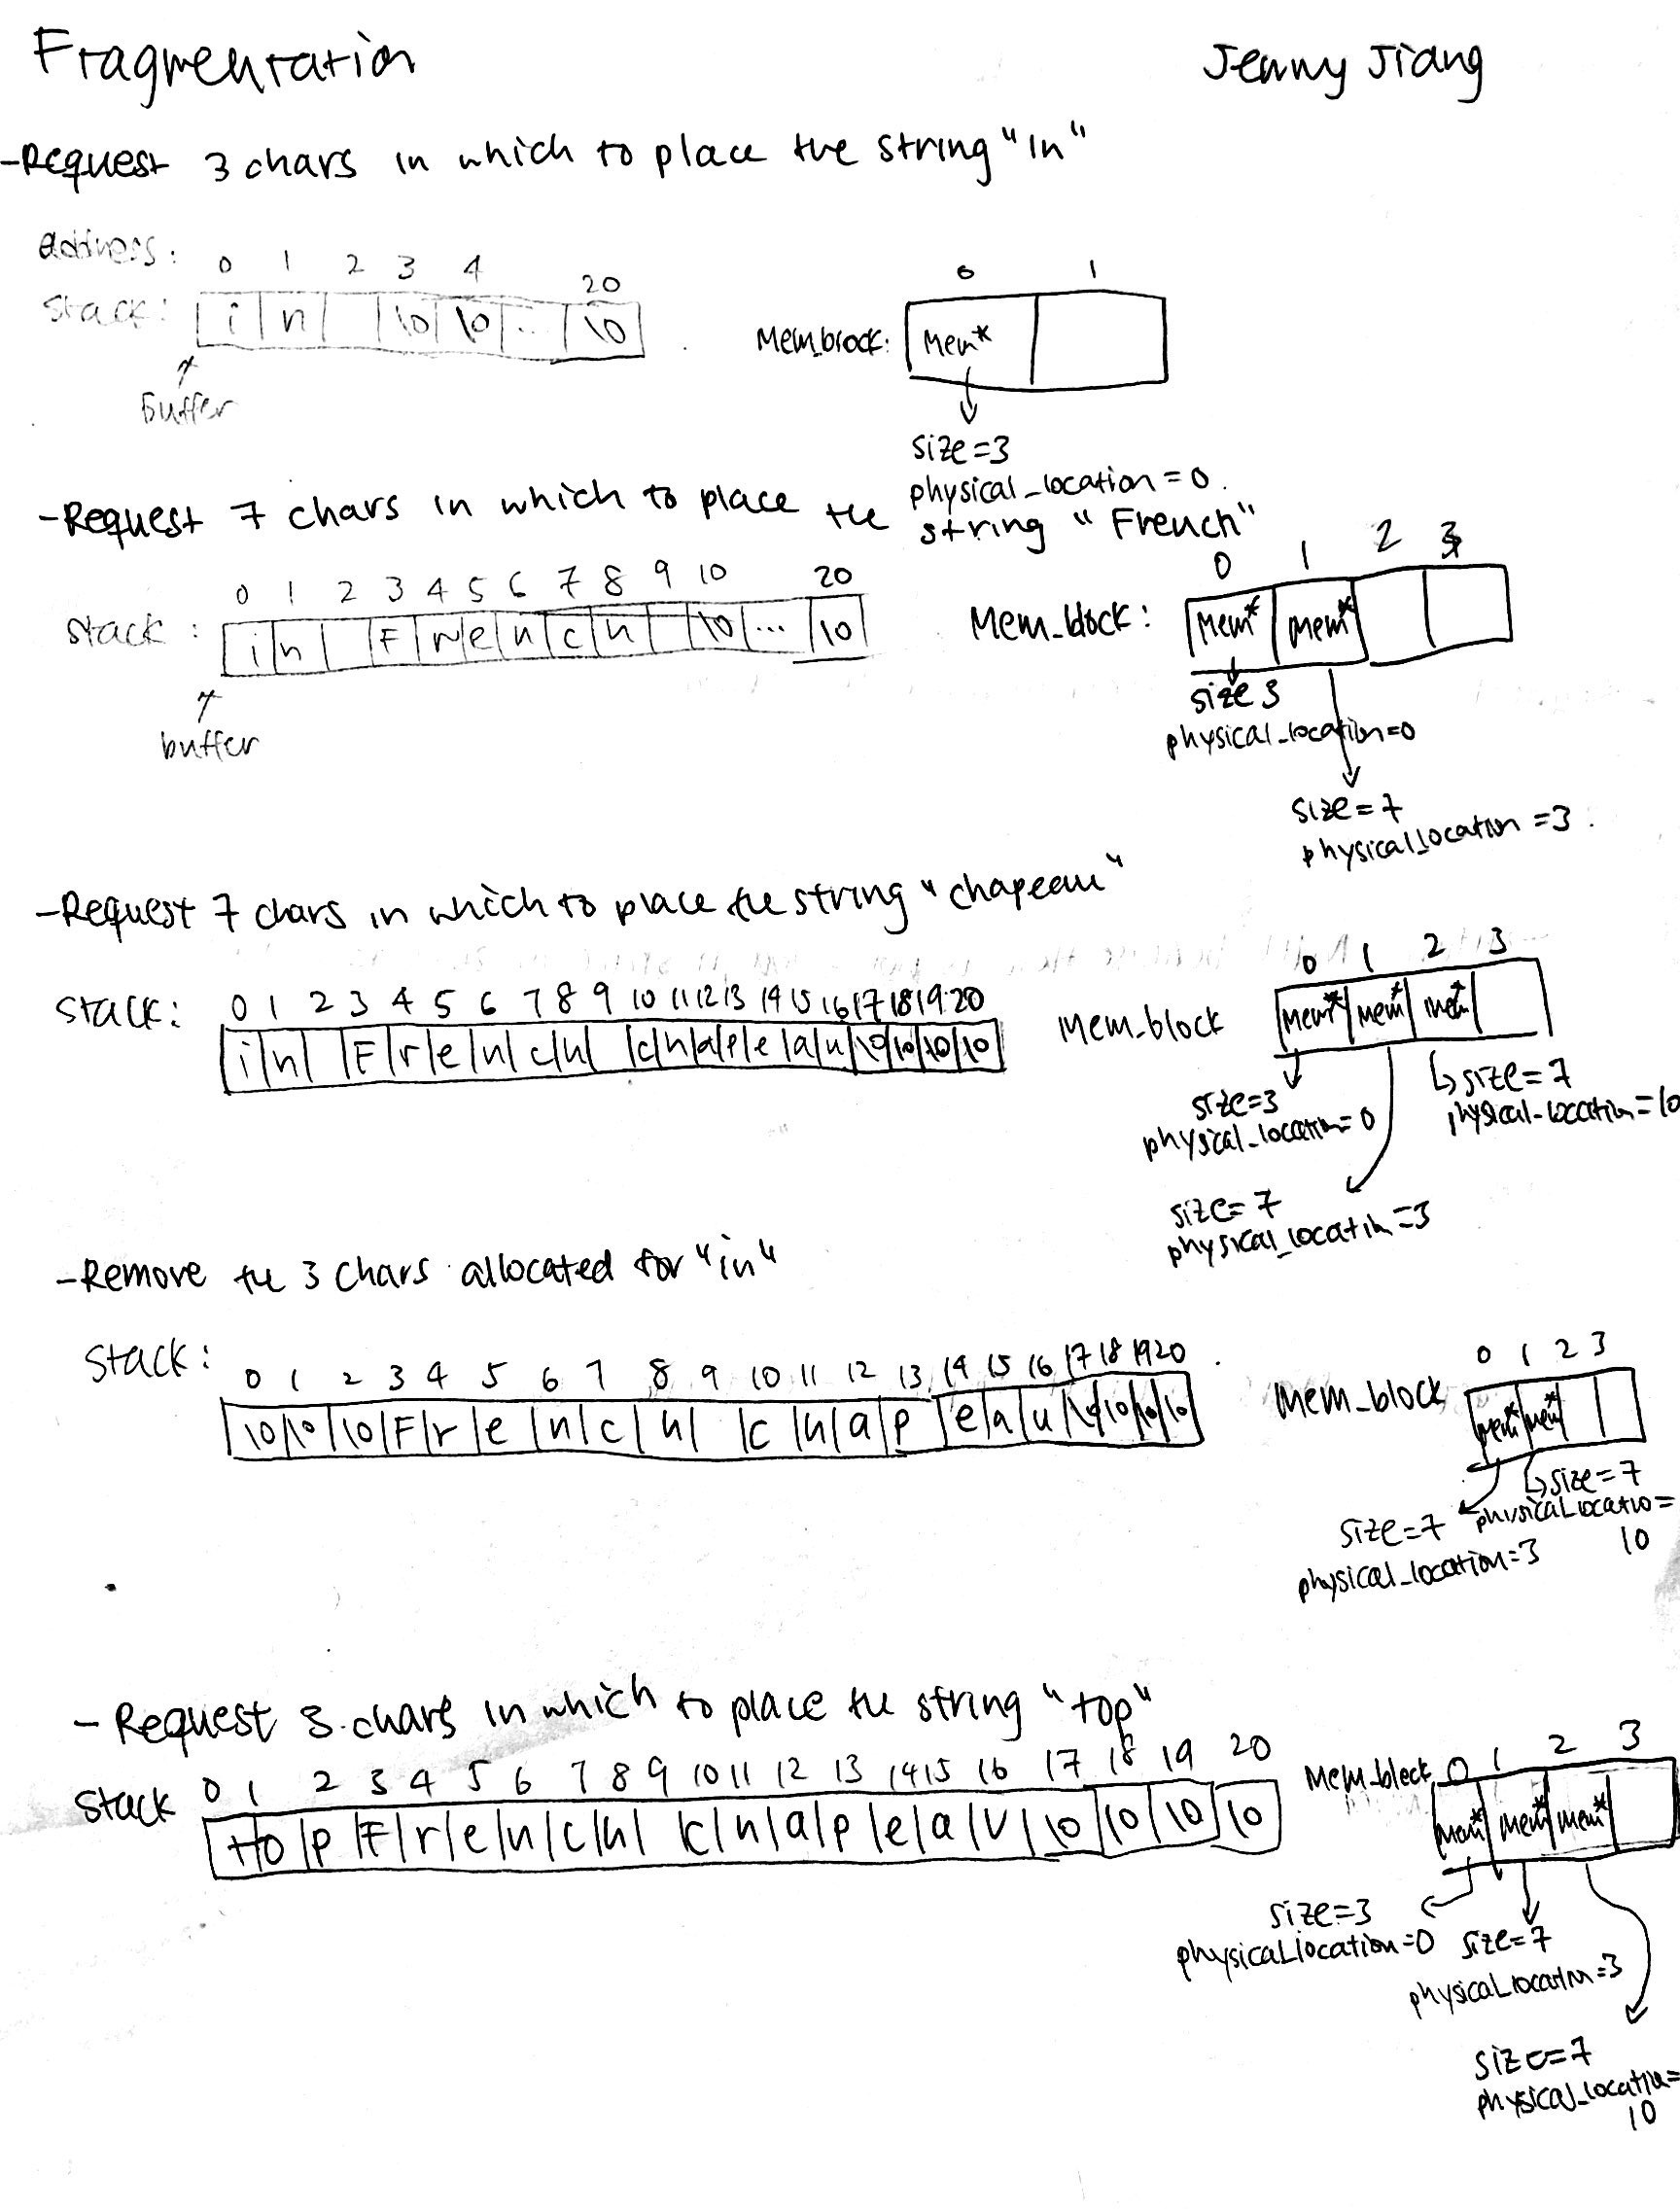 Fragmentation
Jenny Jiang
-Request 3 chars in which to place the string "in"
address: 0 1 2 3 4 20
stack: i n \0 \0 ... \0
buffer
0 1
Mem_block: Mem*
size=3
physical_location=0.
-Request 7 chars in which to place the string "French"
0 1 2 3 4 5 6 7 8 9 10 20
stack: i n F r e n c h \0 ... \0
buffer
0 1 2 3
Mem_block: Mem* Mem*
size 3
physical_location=0
size=7
physical_location=3.
-Request 7 chars in which to place the string "chapeau"
stack: 0 1 2 3 4 5 6 7 8 9 10 11 12 13 14 15 16 17 18 19 20
i n F r e n c h c h a p e a u \0 \0 \0 \0
0 1 2 3
Mem_block Mem* Mem* Mem*
size=3
physical_location=0
size=7
physical_location=10
size=7
physical_location=3
-Remove the 3 chars allocated for "in"
stack: 0 1 2 3 4 5 6 7 8 9 10 11 12 13 14 15 16 17 18 19 20
\0 \0 \0 F r e n c h c h a p e a u \0 \0 \0 \0
0 1 2 3
Mem_block Mem* Mem*
size=7
physical_locatio=
10
size=7
physical_location=3
- Request 3 chars in which to place the string "top"
stack 0 1 2 3 4 5 6 7 8 9 10 11 12 13 14 15 16 17 18 19 20
t o p F r e n c h c h a p e a u \0 \0 \0 \0
Mem_block 0 1 2 3
Mem* Mem* Mem*
size=3
physical_location=0
size=7
physical_location=3
size=7
physical_location=
10